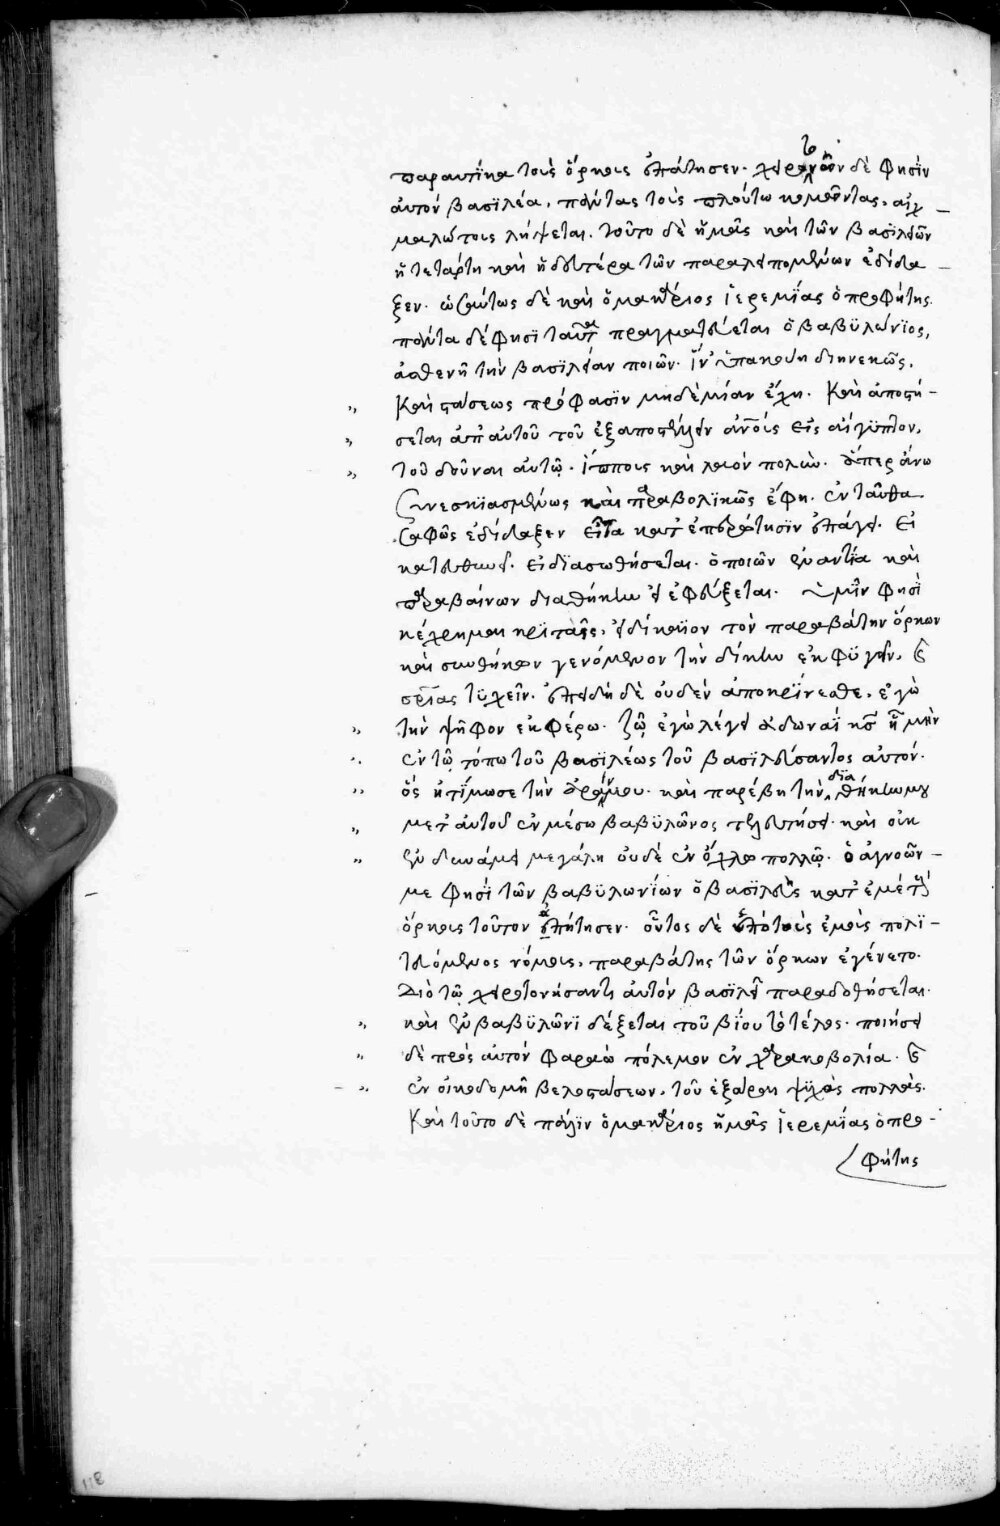 παραυτίκα τοὺς ὅρκους ἀπαιτήσει. χειροτονῶν δὲ φησὶν
αὐτὸν βασιλέα, πάντας τοὺς πλούτω κομῶντας, αἰχ-
μαλώτους λήψεται. τοῦτο δὲ ἡμᾶς καὶ τῶν βασιλειῶν
ἡ τετάρτη καὶ ἡ δευτέρα τῶν παραλειπομένων ἐδίδα-
ξεν. ὡσαύτως δὲ καὶ ὁ μακάριος ἱερεμίας ὁ προφήτης.
πάντα δέ φησι ταῦτα πραγματεύεται ὁ βαβυλώνιος,
ἀσθενῆ τὴν βασιλείαν ποιῶν. ἵν' ὑπακούη διηνεκῶς,
" καὶ στάσεως πρόφασιν μηδεμίαν ἔχη. καὶ ἀποστή-
" σεται ἀπ' αὐτοῦ τοῦ ἐξαποστέλλειν ἀγγέλους εἰς αἴγυπτον,
" τοῦ δοῦναι αὐτῷ ἵππους καὶ λαὸν πολύν. ἅπερ ἄνω
συνεσκιασμένως καὶ παραβολικῶς ἔφη. ἐνταῦθα
σαφῶς ἐδίδαξεν εἶτα κατ' ἐπερώτησιν ἐπάγει. εἰ
κατευθυνεῖ. εἰ διασωθήσεται. ὁ ποιῶν ἐναντία καὶ
παραβαίνων διαθήκην εἰ ἐκφεύξεται. ὑμῖν φησὶ
κέχρημαι κριταῖς, εἰ δίκαιον τὸν παραβάτην ὅρκων
καὶ συνθηκῶν γενόμενον τὴν δίκην ἐκφυγεῖν, καὶ
σωτηρίας τυχεῖν. ἐπειδὴ δὲ οὐδὲν ἀποκρίνεσθε, ἐγὼ
" τὴν ψῆφον ἐκφέρω. ζῶ ἐγὼ λέγει ἀδωναῒ κς εἰ μὴν
" ἐν τῷ τόπω τοῦ βασιλέως τοῦ βασιλεύσαντος αὐτόν.
" ὃς ἠτίμωσε τὴν ἀράν μου. καὶ παρέβη τὴν διαθήκην μου
" μετ' αὐτοῦ ἐν μέσω βαβυλῶνος τελευτήσει. καὶ οὐκ
" ἐν δυνάμει μεγάλη οὐδὲ ἐν ὄχλω πολλῷ. ὁ ἀγνοῶν-
με φησὶ τῶν βαβυλωνίων ὁ βασιλεὺς κατ' ἐμὲ τοὺς
ὅρκους τοῦτον ἀπήτησεν. οὗτος δὲ τοῖς ἐμοῖς πολι-
τευόμενος νόμοις, παραβάτης τῶν ὅρκων ἐγένετο.
διὸ τῷ χειροτονήσαντι αὐτὸν βασιλεῖ παραδοθήσεται.
" καὶ ἐν βαβυλῶνι δέξεται τοῦ βίου τὸ τέλος. ποιήσει
" δὲ πρὸς αὐτὸν φαραὼ πόλεμον ἐν χαρακοβολία. καὶ
" ἐν οἰκοδομῆ βελοστάσεων, τοῦ ἐξᾶραι ψυχὰς πολλάς.
καὶ τοῦτο δὲ πάλιν ὁ μακάριος ἡμᾶς ἱερεμίας ὁ προ-
φήτης